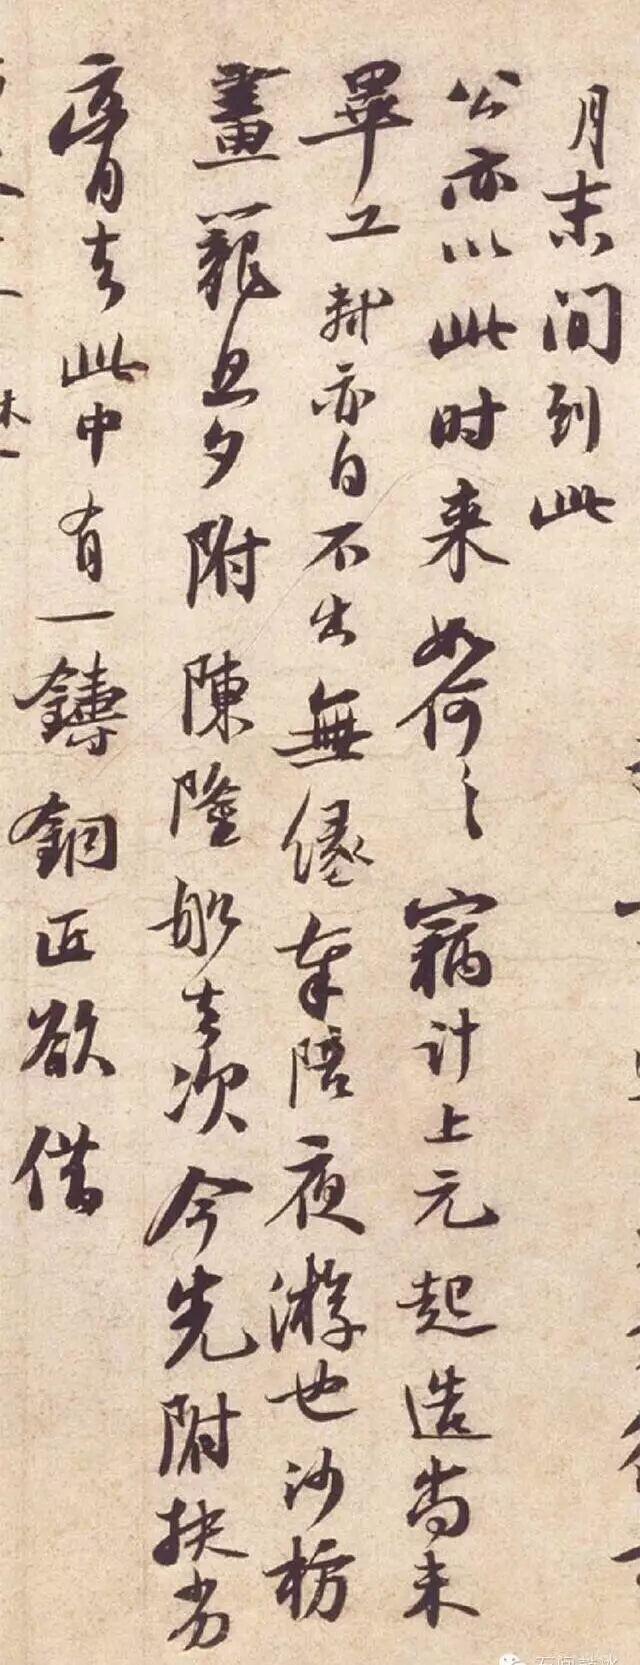 月末間到此
公亦以此時來如何〻竊計上元起造尚未
畢工軾亦自不出無緣奉陪夜游也沙枋
畫籠旦夕附陳隆船去次今先附扶劣
膏去此中有一鑄銅匠欲借